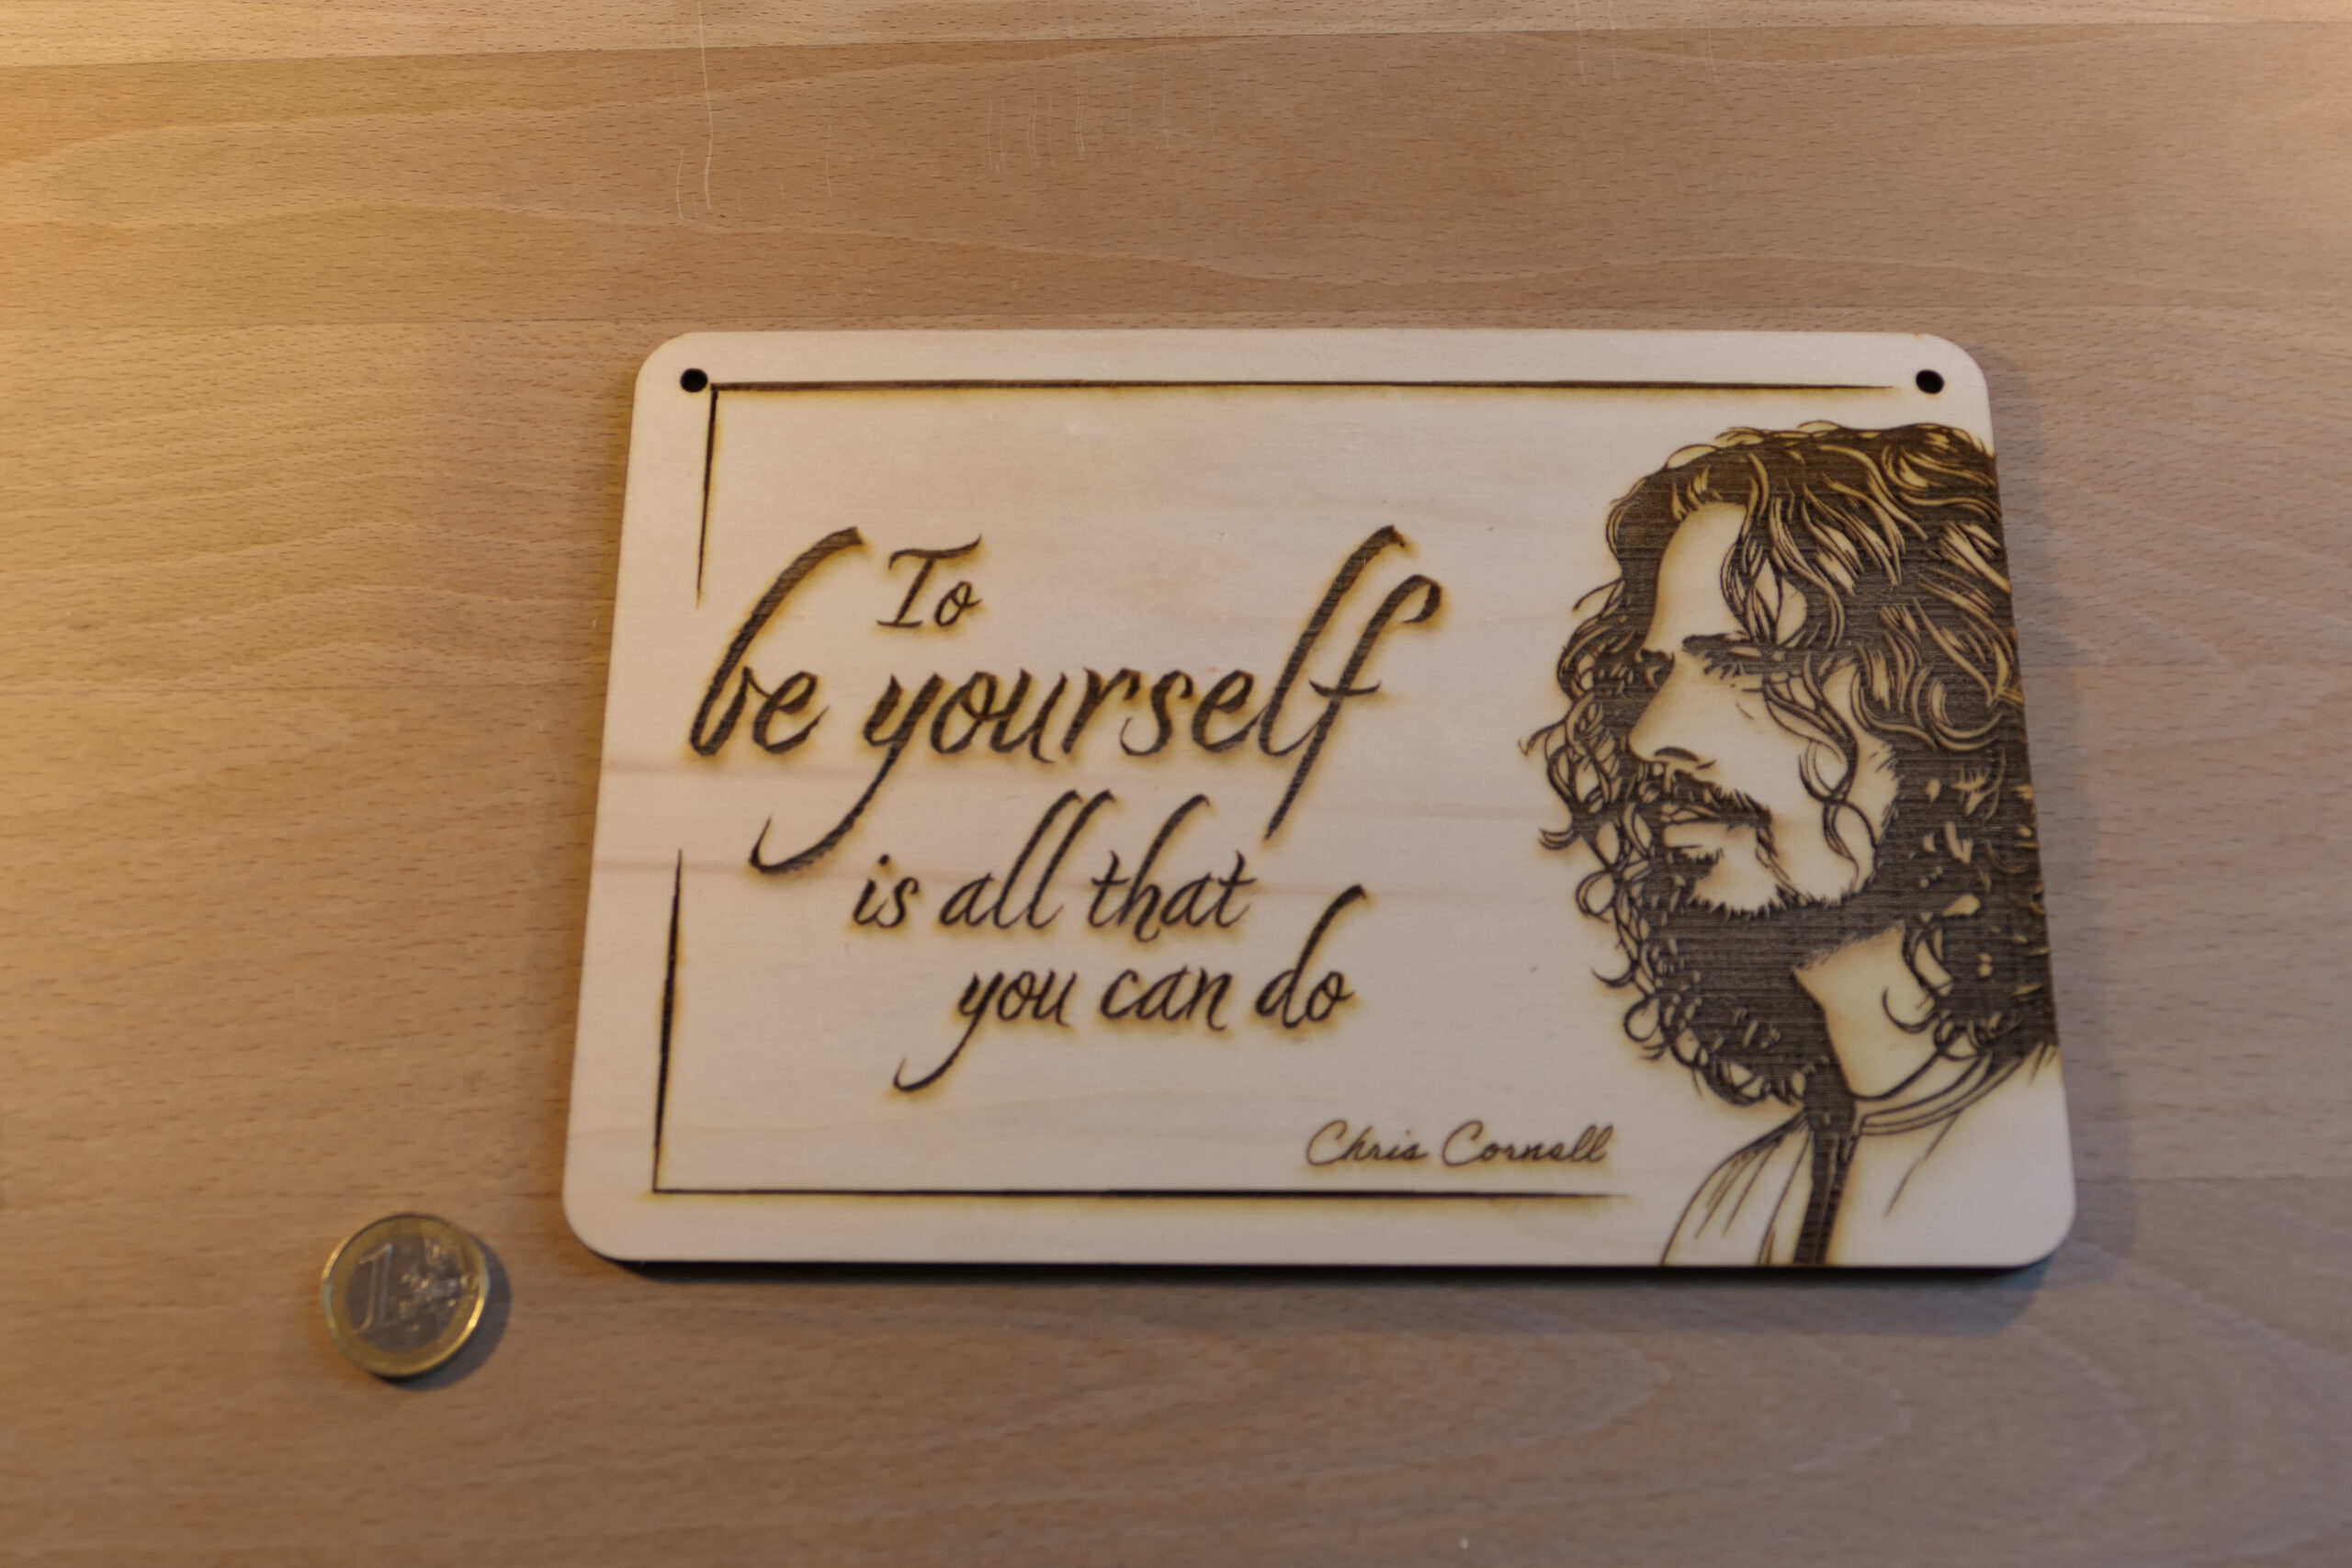 To
be yourself
is all that
you can do
Chris Cornell
1